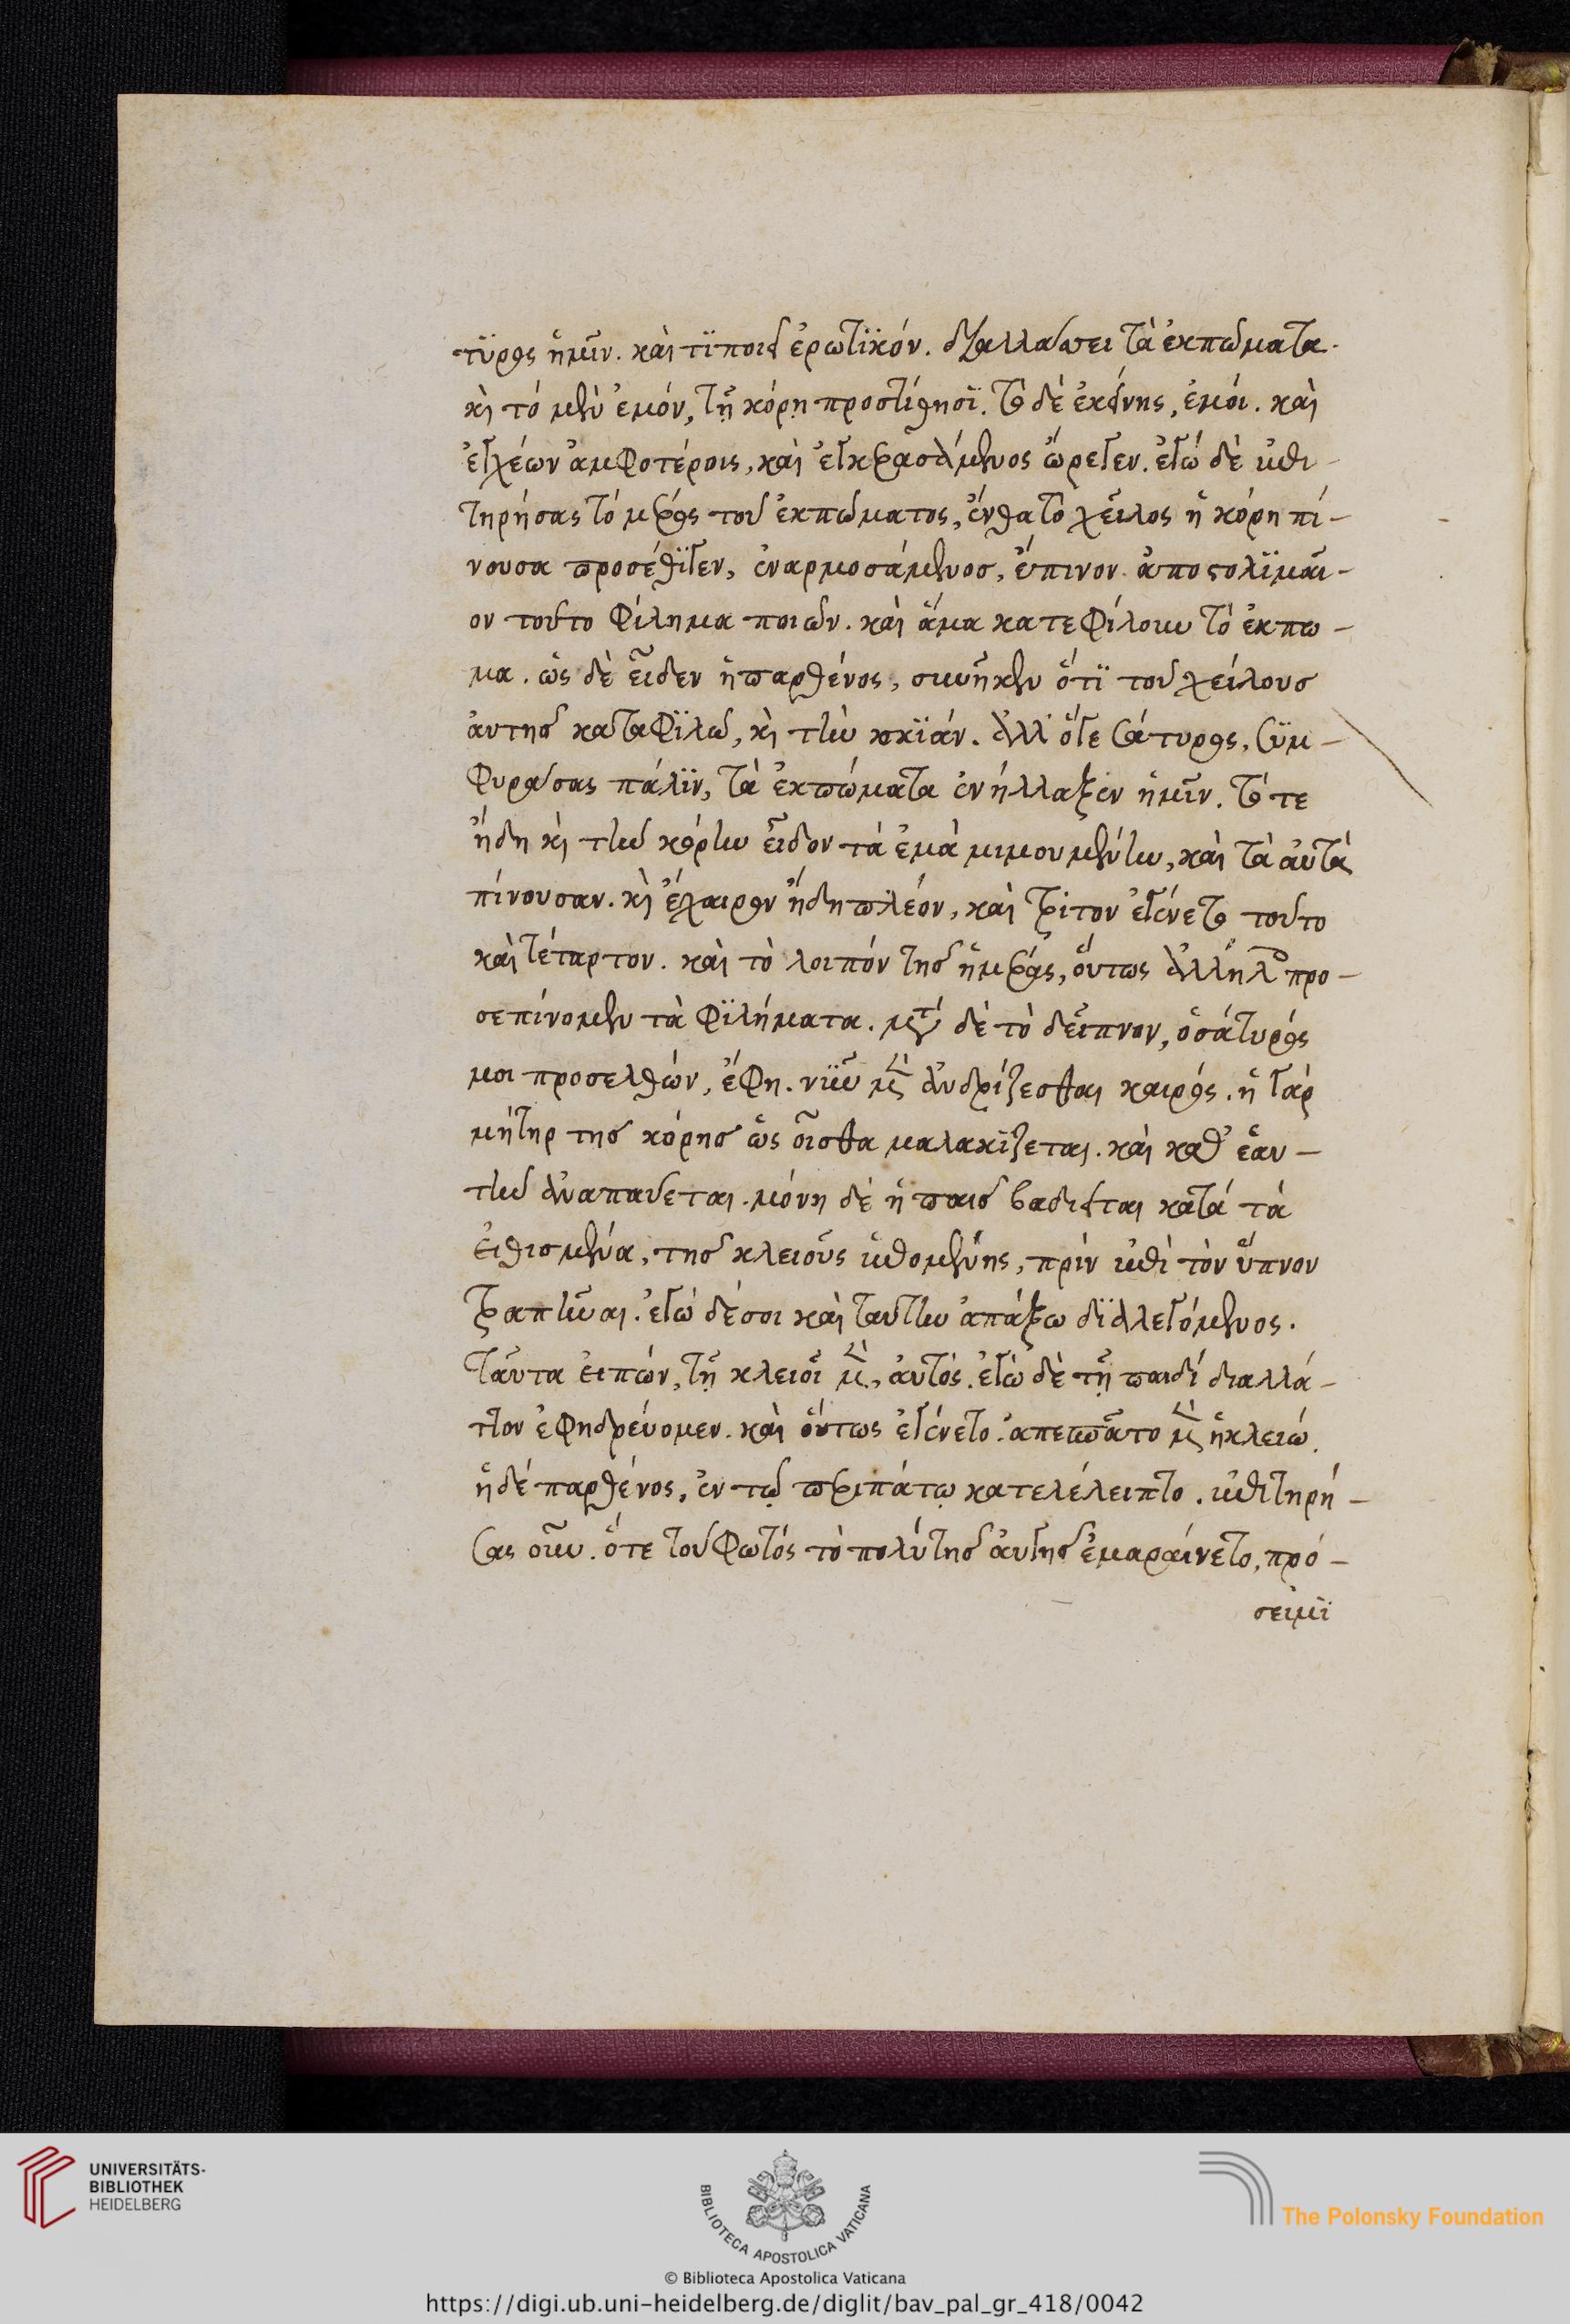 τύρος ἡμῖν. καὶ τὶ ποιεῖ ἐρωτικόν. διαλλάσσει τὰ ἐκπώματα.
καὶ τὸ μὲν ἐμόν, τῇ κόρῃ προστίθησι. τὸ δὲ ἐκείνης, ἐμοί. καὶ
ἐγχέων ἀμφοτέροις, καὶ ἐγκερασάμενος ὤρεγεν. ἐγὼ δὲ ἐπι-
τηρήσας τὸ μέρος τοῦ ἐκπώματος, ἔνθα τὸ χεῖλος ἡ κόρη πί-
νουσα προσέθιγεν, ἐναρμοσάμενος, ἔπινον. ἀποστολιμαῖ-
ον τοῦτο φίλημα ποιῶν. καὶ ἅμα κατεφίλουν τὸ ἔκπω-
μα. ὡς δὲ εἶδεν ἡ παρθένος, συνῆκεν ὅτι τοῦ χείλους
αὐτῆς καταφιλῶ, καὶ τὴν σκιάν. ἀλλ' ὅγε σάτυρος, συμ-
φυράσας πάλιν, τὰ ἐκπώματα ἐνήλλαξεν ἡμῖν. τότε
ἤδη καὶ τὴν κόρην εἶδον τὰ ἐμὰ μιμουμένην, καὶ τὰ αὐτὰ
πίνουσαν. καὶ ἔχαιρον ἤδη πλέον, καὶ τρίτον ἐγένετο τοῦτο
καὶ τέταρτον. καὶ τὸ λοιπὸν τῆς ἡμέρας, οὕτως ἀλλήλοις προ-
σεπίνομεν τὰ φιλήματα. μετὰ δὲ τὸ δεῖπνον, ὁ σάτυρός
μοι προσελθών, ἔφη. νῦν μὲν ἀνδρίζεσθαι καιρός. ἡ γὰρ
μήτηρ τῆς κόρης ὡς οἶσθα μαλακίζεται. καὶ καθ' ἑαυ-
τὴν ἀναπαύεται. μόνη δὲ ἡ παῖς βαδιεῖται κατὰ τὰ
εἰθισμένα, τῆς κλειοῦς ἑπομένης, πρὶν ἐπὶ τὸν ὕπνον
τραπῆναι. ἐγὼ δέ σοι καὶ ταύτην ἀπάξω διαλεγόμενος.
ταῦτα εἰπών, τῇ κλειοῖ μὲν, αὐτός. ἐγὼ δὲ τῇ παιδί διαλλά-
τ]τον ἐφηδρεύομεν. καὶ οὕτως ἐγένετο. ἀπεσπᾶτο μὲν ἡ κλειώ.
ἡ δὲ παρθένος, ἐν τῷ περιπάτῳ κατελέλειπτο. ἐπιτηρή-
σας οὖν. ὅτε τοῦ φωτὸς τὸ πολὺ τῆς αὐγῆς ἐμαραίνετο, πρό-
σειμι
UNIVERSITÄTS-
BIBLIOTHEK
HEIDELBERG
BIBLIOTECA APOSTOLICA VATICANA
The Polonsky Foundation
© Biblioteca Apostolica Vaticana
https://digi.ub.uni-heidelberg.de/diglit/bav_pal_gr_418/0042